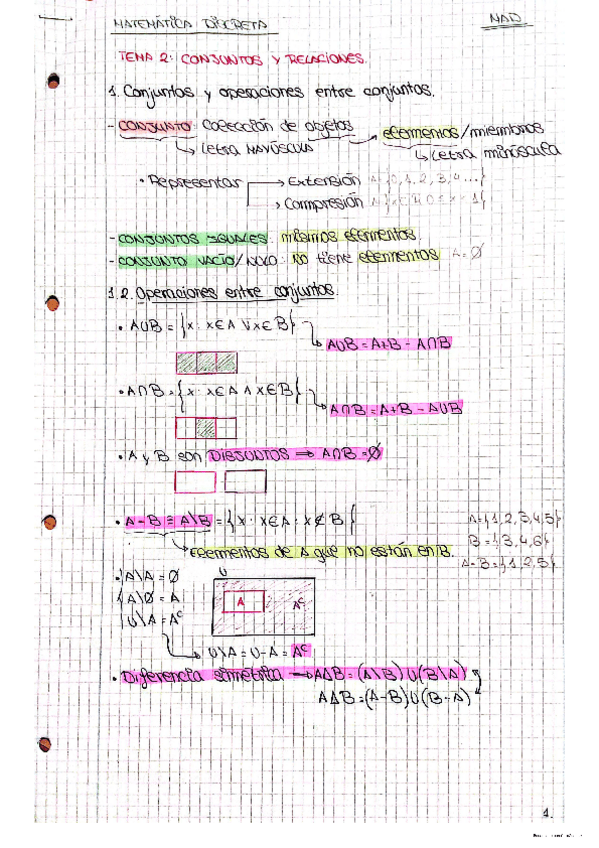 MATEMÁTICA DISCRETA
NAD.
TEMA 2: CONJUNTOS Y RELACIONES.
1. Conjuntos y operaciones entre conjuntos.
- CONJUNTO: Colección de objetos → elementos/miembros
↳ Letra MAYÚSCULA
↳ Letra minúscula
· Representar → Extensión A={0,1,2,3,4...}
→ Compresión
- CONJUNTOS IGUALES: mismos elementos.
- CONJUNTO VACÍO/NULO: NO tiene elementos A=∅
1.2. Operaciones entre conjuntos.
· A∪B = {x: x∈A ∨ x∈B}
↳ A∪B = A+B - A∩B
· A∩B = {x: x∈A ∧ x∈B}
↳ A∩B = A+B - A∪B
· A y B son DISJUNTOS ⇒ A∩B=∅
· A-B ≡ A\B = {x: x∈A: x∉B}
A={1,2,3,4,5}
B={3,4,6}
A-B={1,2,5}
↳ Elementos de A que no están en B.
· A\A = ∅
A\∅ = A
U\A = Aᶜ
U
A
Aᶜ
↳ U\A = U-A = Aᶜ
· Diferencia simétrica → A∆B = (A\B)∪(B\A)
A∆B = (A-B)∪(B-A)
1.